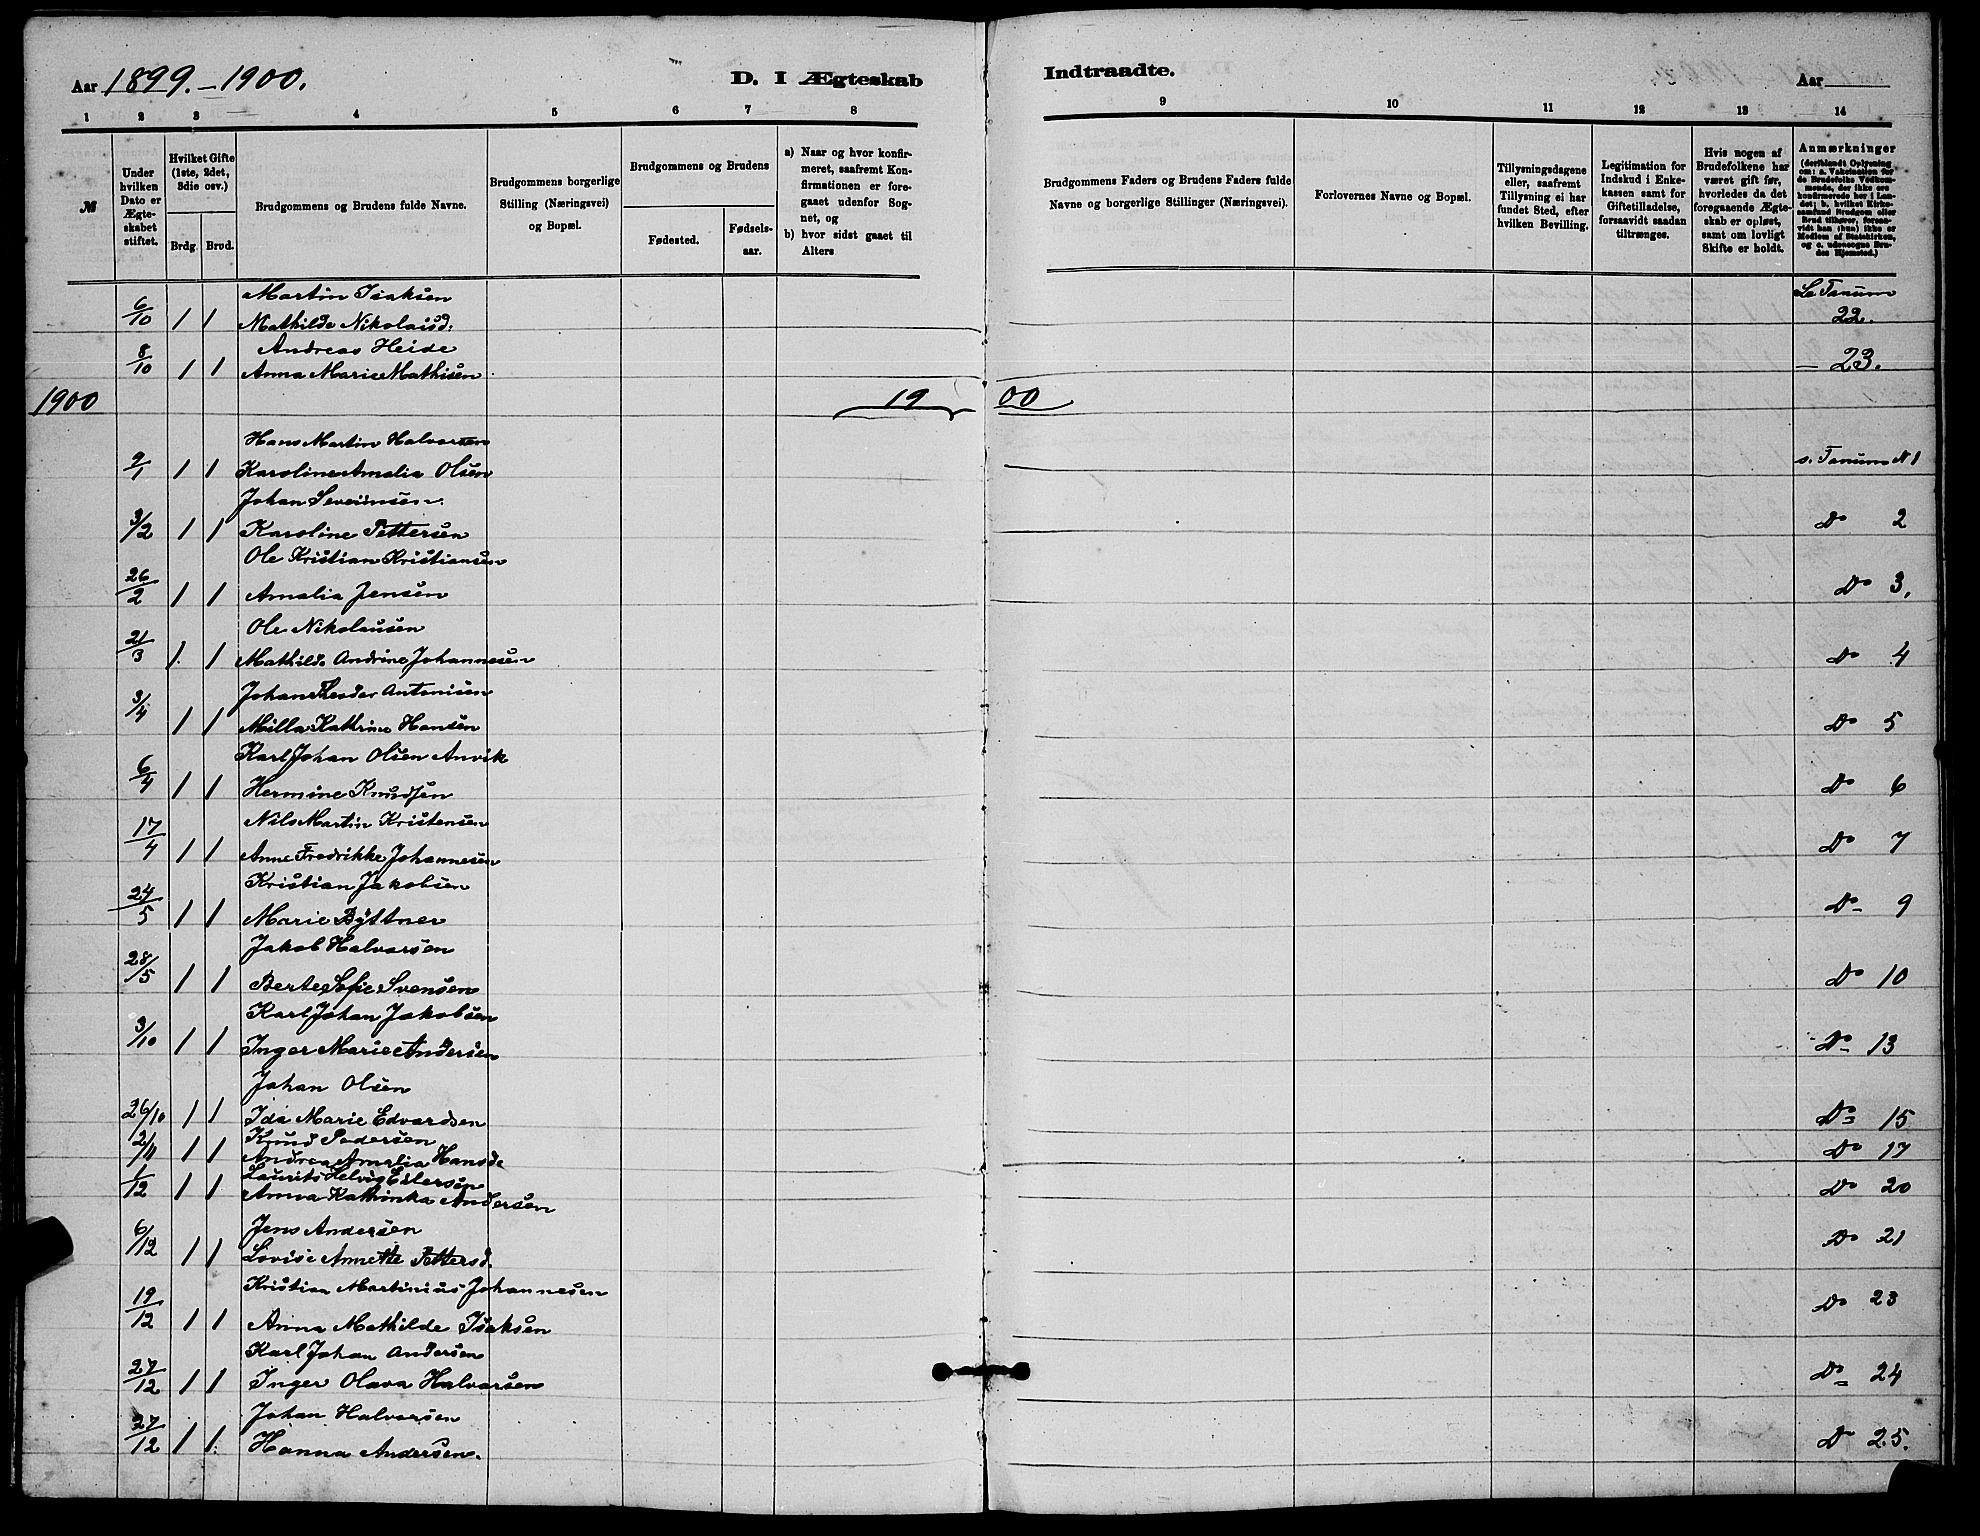 Aar 1899.-1900. D. I Ægteskab Indtraadte. Aar
1 2 3 4 5 6 7 8 9 10 11 12 13 14
№
Under hvilken Dato er Ægteskabet stiftet.
Hvilket Gifte (1ste, 2det, 3die osv.)
Brdg. Brud.
Brudgommens og Brudens fulde Navne.
Brudgommens borgerlige Stilling (Næringsvei) og Bopæl.
Brudgommens og Brudens
Fødested. Fødselsaar.
a) Naar og hvor konfirmeret, saafremt Konfirmationen er foregaaet udenfor Sognet, og
b) hvor sidst gaaet til Alters
Brudgommens Faders og Brudens Faders fulde Navne og borgerlige Stillinger (Næringsvei).
Forlovernes Navne og Bopæl.
Tillysningsdagene eller, saafremt Tillysning ei har fundet Sted, efter hvilken Bevilling.
Legitimation for Indskud i Enkekassen samt for Giftetilladelse, forsaavidt saadan tiltrænges.
Hvis nogen af Brudefolkene har været gift før, hvorledes da det foregaaende Ægteskab er opløst, samt om lovligt Skifte er holdt.
Anmærkninger (deriblandt Oplysning om: a. Vakcination for de Brudefolks Vedkommende, der ikke ere konfirmerede her i Landet; b. hvilket Kirkesamfund Brudgom eller Brud tilhører, forsaavidt han (hun) ikke er Medlem af Statskirken, og c. udensogns Brudes Hjemsted.)
Martin Isaksen Tanum
6/10 1 1 Mathilde Nikolaisd. 22.
Andreas Heide
8/10 1 1 Anna Marie Mathisen – 23.
1900 19 00
Hans Martin Halvorsen
9/1 1 1 Karoline Amalia Olsen s. Tanum N 1
Johan Severinsen.
3/2 1 1 Karoline Pettersen Do 2
Ole Kristian Kristiansen
26/2 1 1 Amalia Jensen Do 3.
Ole Nikolausen
21/3 1. 1 Mathilde Andrine Johannesen Do 4
Johan Theodor Antonisen
3/4 1 1 Milla Kathrine Hansen Do 5
Karl Johan Olsen Anvik
6/4 1 1 Hermine Knudsen Do 6
Nils Martin Kristensen
17/4 1 1 Anne Fredrikke Johannesen Do 7
Kristian Jakobsen
24/5 1 1 Marie Byttner Do 9
Jakob Halvorsen
28/5 1 1 Berte Sofie Svensen Do 10
Karl Johan Jakobsen
3/10 1 1 Inger Marie Andersen Do 13
Johan Olsen
26/10 1 1 Ida Marie Edvardsen Do 15
Knud Pedersen
2/11 1 1 Andrea Amalia Hansd. Do 17
Laurits Helvig Eilersen
1/12 1 1 Anna Kathinka Andersen Do 20
Jens Andersen
6/12 1 1 Lovise Annette Pettersd. Do 21
Kristian Martinius Johannesen
19/12 1 1 Anna Mathilde Isaksen Do 23
Karl Johan Andersen
27/12 1 1 Inger Olava Halvorsen Do 24
Johan Halvorsen
27/12 1 1. Hanna Andersen. Do 25.